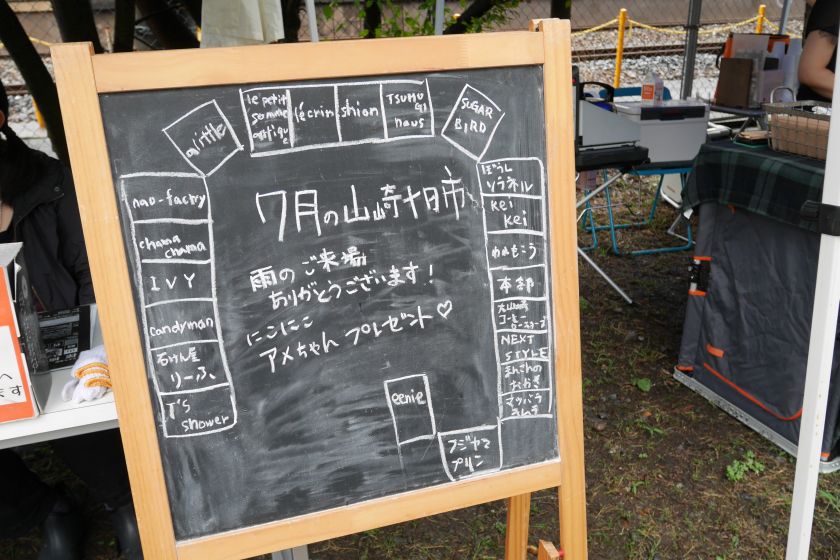 le petit
somme
lécrin
shion
TSUMUGI
naus
SUGAR
BIRD
airttle
nao-factry
chama
chama
IVY
candyman
石けん屋
りーふ
T's
shower
7月の山崎十日市
雨のご来場
ありがとうございます!
にこにこ
アメちゃん プレゼント♡
ぼうし
ソラネル
kei
kei
われもこう
本部
大山崎
コーヒー
ロースターズ
NEXT
STYLE
まんげんの
おおぎ
マツバラ
eenie
フジヤマ
プリン
ます